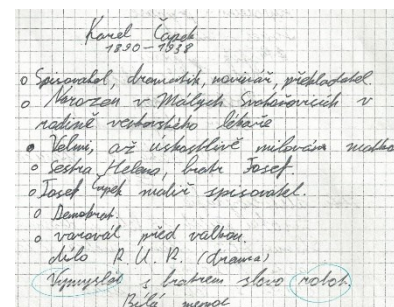 Karel Čapek
1890–1938
o Spisovatel, dramatik, novinář, překladatel.
o Narozen v Malých Svatoňovicích v
rodině venkovského lékaře
• Velmi, až úzkostlivě milován matkou
o Sestra Helena, bratr Josef.
o Josef Čapek malíř spisovatel.
o Demokrat.
o varoval před válkou.
dílo R. U. R. (drama)
Vymyslel s bratrem slovo robot.
Bílá nemoc